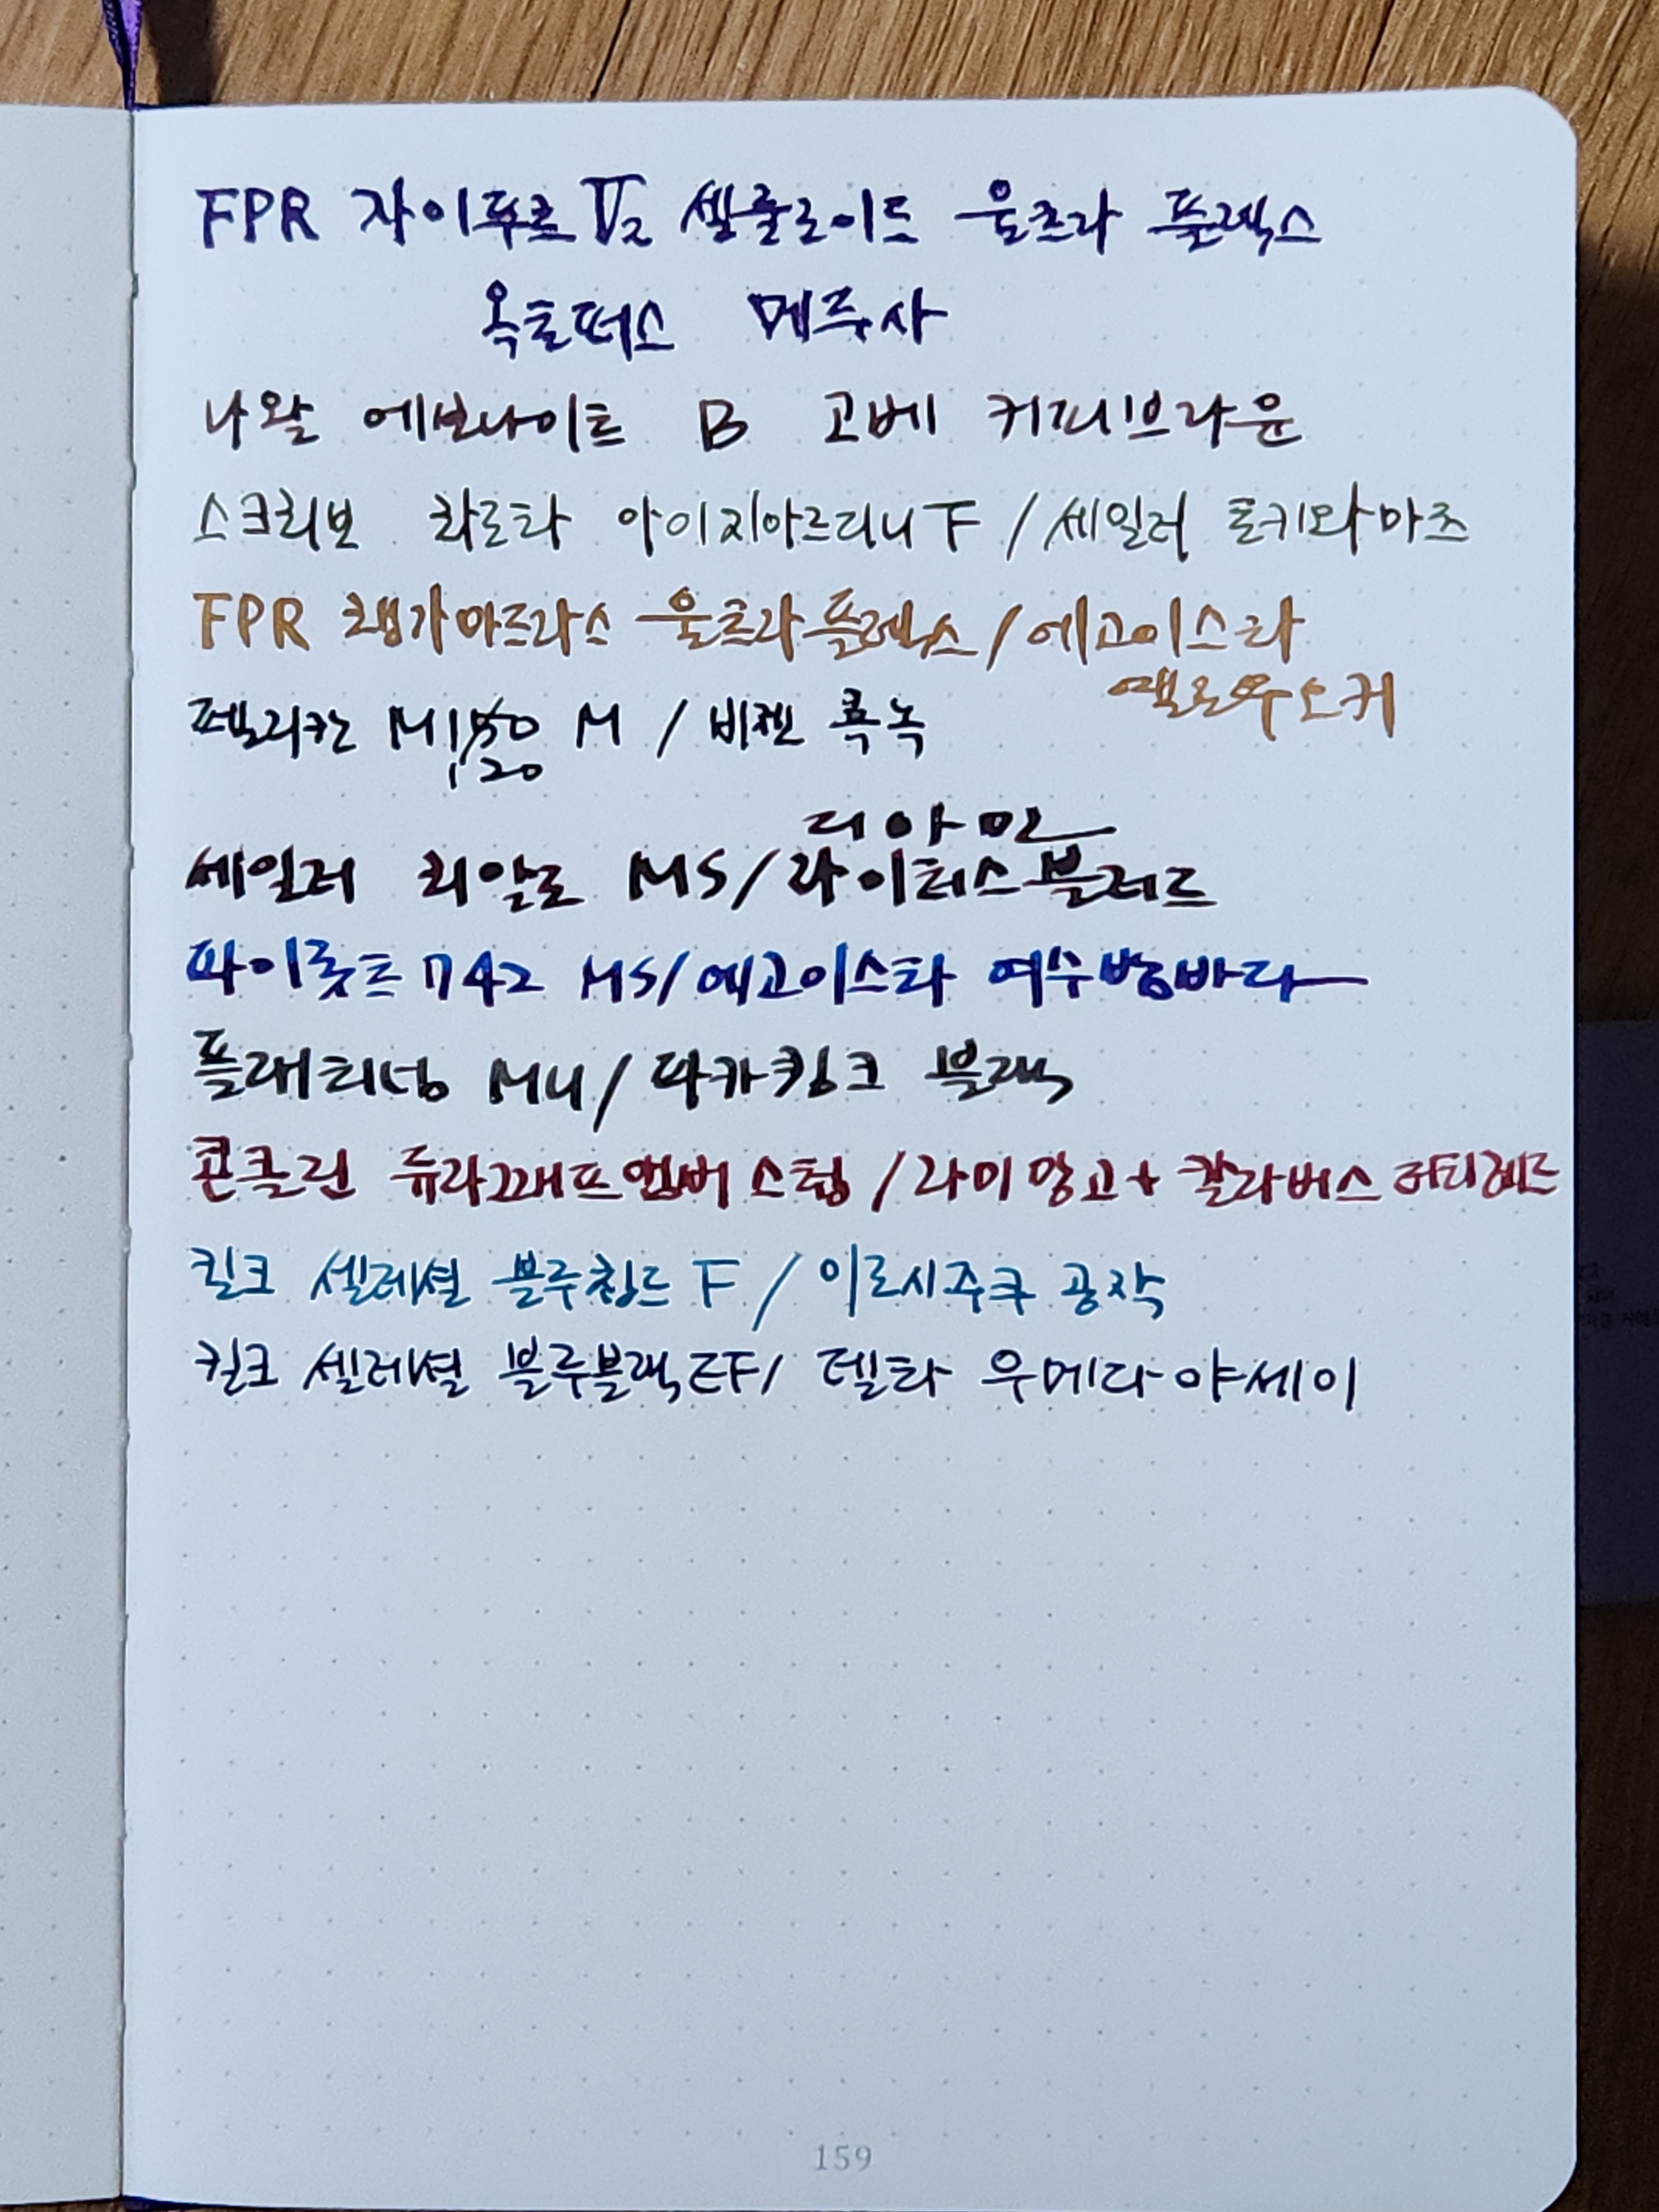 FPR 자이푸르 V2 셀룰로이드 울트라 플렉스
옥토퍼스 메두사
나왈 에보나이트 B 고베 커피브라운
스크리보 차로타 아이지아르디니 F / 세일러 토키와마츠
FPR 챙가마드라스 울트라플렉스 / 에고이스타
옐로우오커
펠리칸 M120 M / 비젠 흑녹
디아민
세일러 리알로 MS / 라이터스블러드
파이롯트 742 MS / 에고이스타 여수밤바다
플래티넘 MU / 파카큉크 블랙
콘클린 듀라그래프앰버 스텁 / 라미 망고 + 칼라버스 레드
킬크 셀레셜 블루힌드 F / 이로시주쿠 공작
킬크 셀레셜 블루블랙 EF / 델타 우메다야세이
159